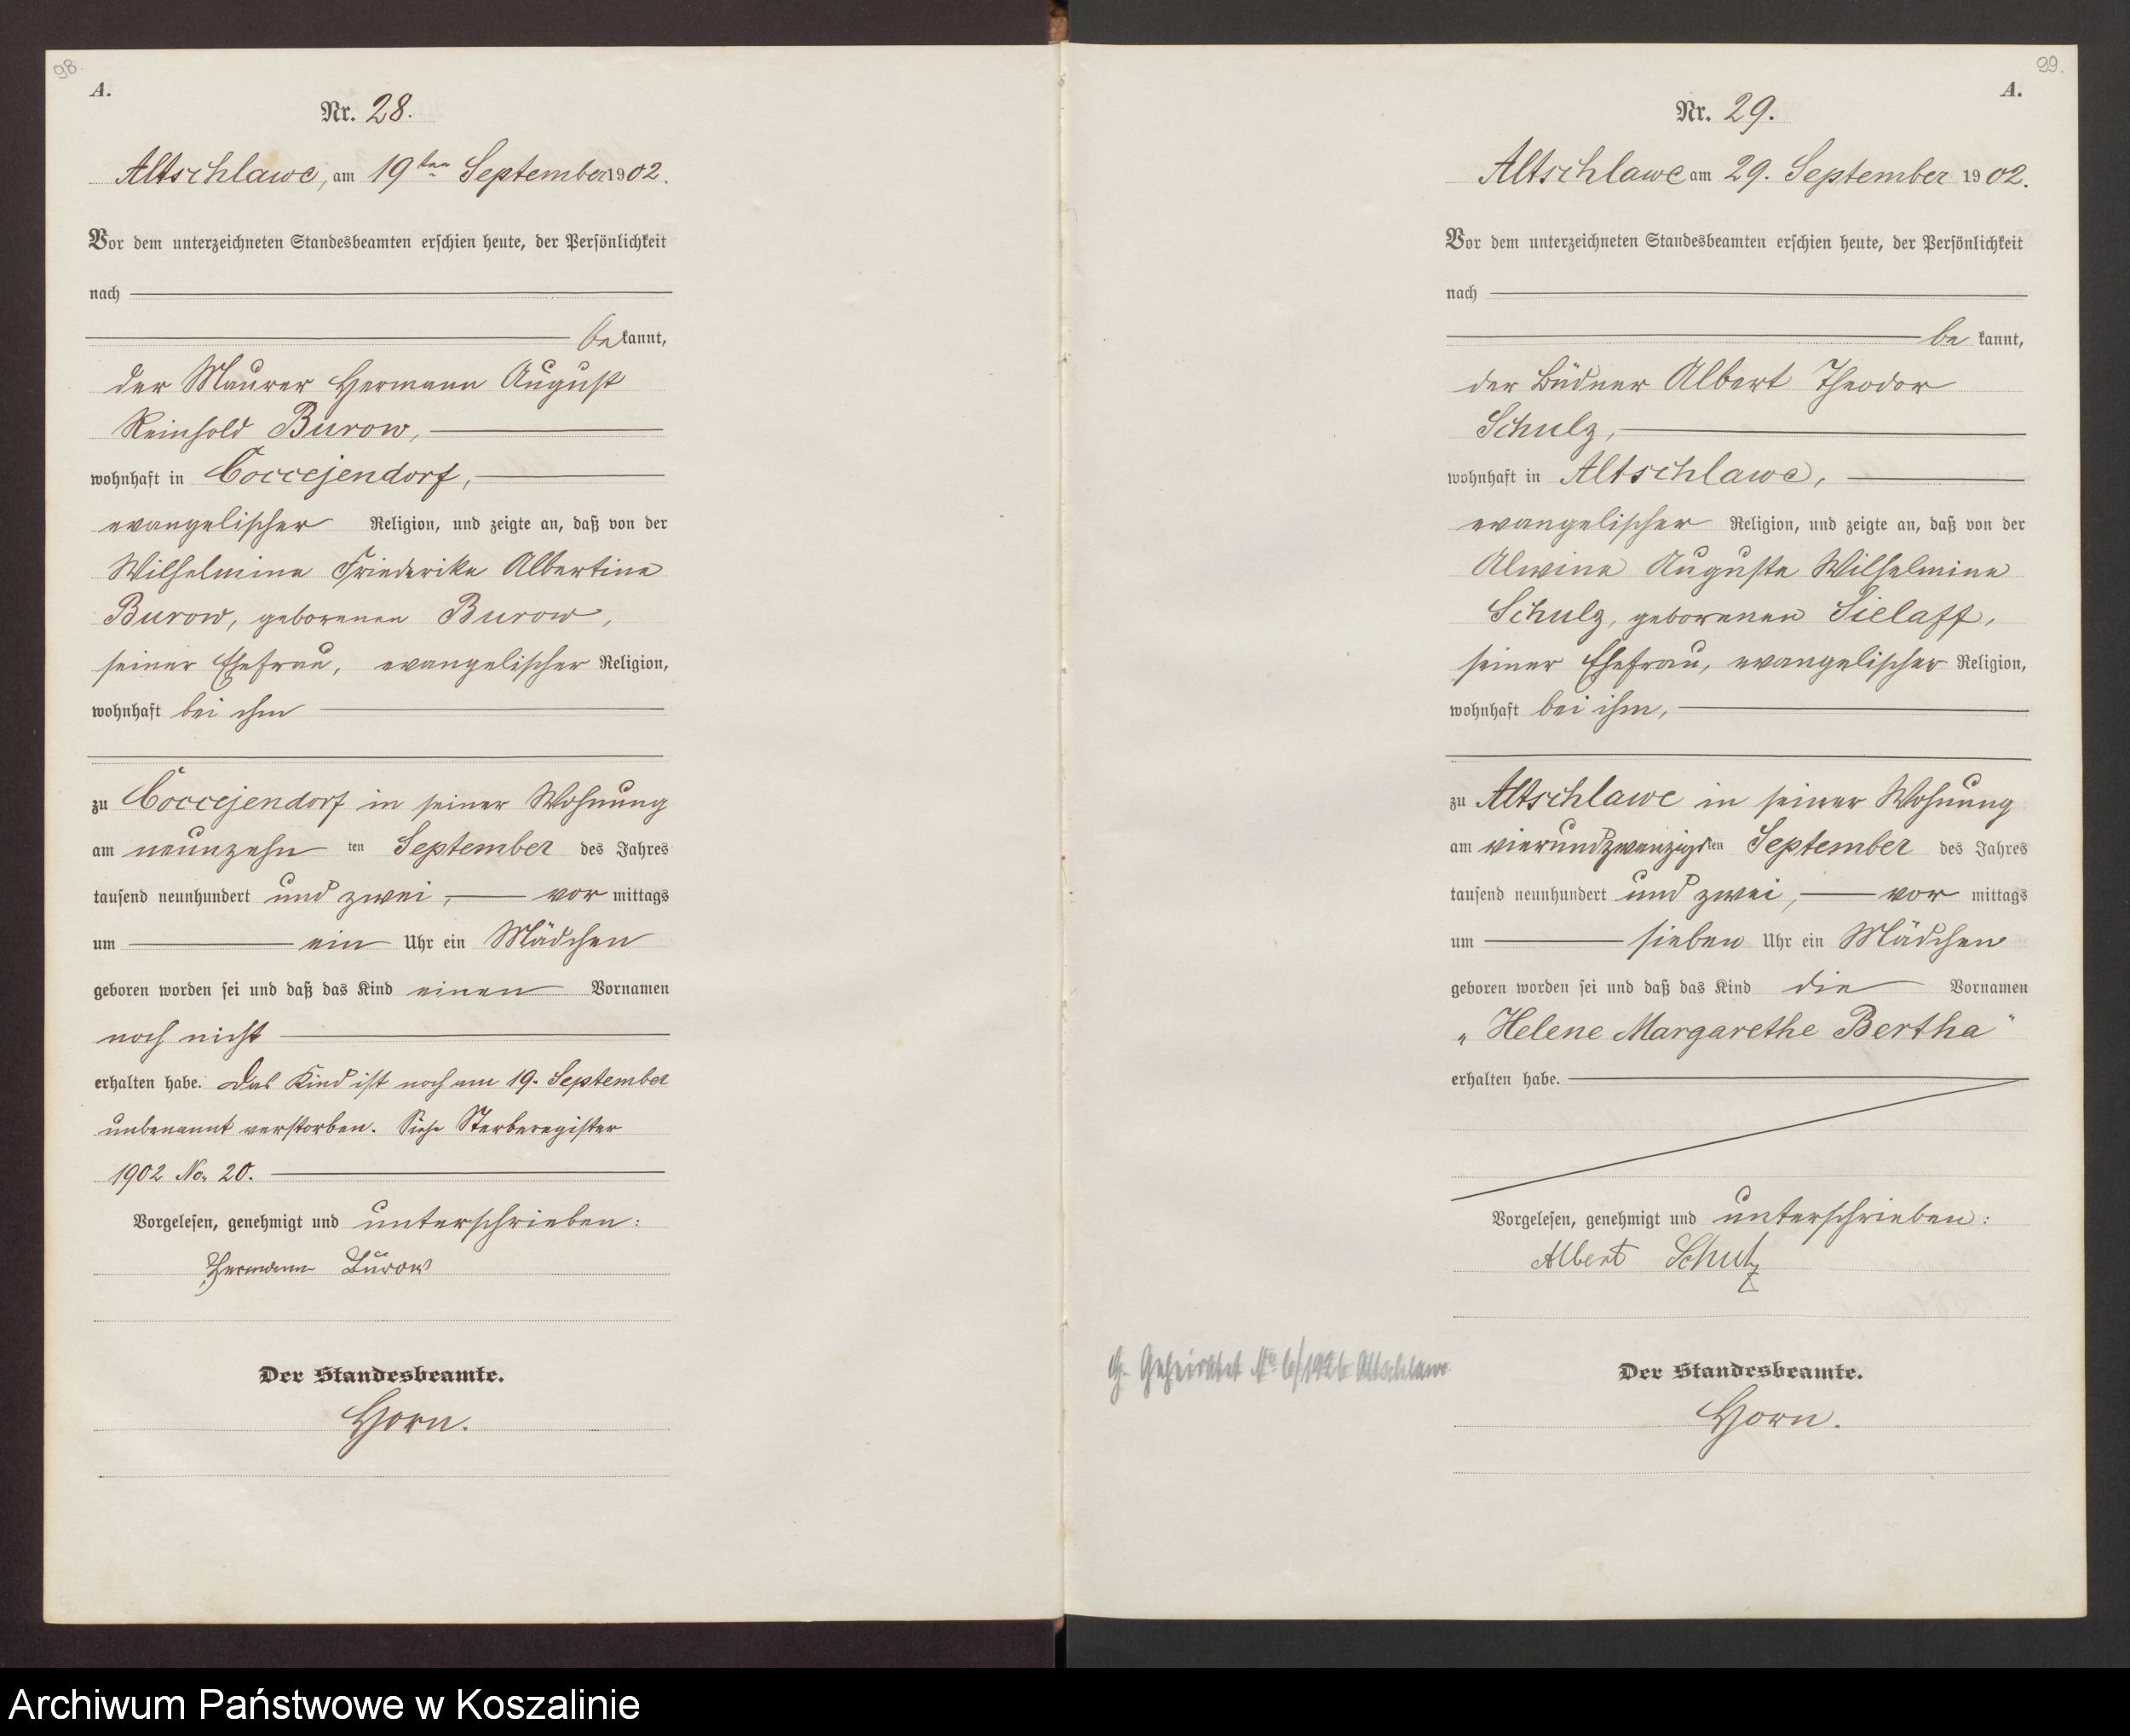 98.
A.
Nr. 28.
Altschlawe, am 19ten September 1902.
Vor dem unterzeichneten Standesbeamten erschien heute, der Persönlichkeit
nach
be kannt,
der Maurer Hermann August
Reinhold Burow,
wohnhaft in Coccejendorf,
evangelischer Religion, und zeigte an, daß von der
Wilhelmine Friederike Albertine
Burow, geborenen Burow,
seiner Ehefrau, evangelischer Religion,
wohnhaft bei ihm
zu Coccejendorf in seiner Wohnung
am neunzehn ten September des Jahres
tausend neunhundert und zwei, vor mittags
um ein Uhr ein Mädchen
geboren worden sei und daß das Kind einen Vornamen
noch nicht
erhalten habe. Das Kind ist noch am 19. September
unbenannt verstorben. Siehe Sterberegister
1902 No. 20.
Vorgelesen, genehmigt und unterschrieben:
Hermann Burow
Der Standesbeamte.
Horn.
99.
A.
Nr. 29.
Altschlawe am 29. September 1902.
Vor dem unterzeichneten Standesbeamten erschien heute, der Persönlichkeit
nach
be kannt,
der Büdner Albert Theodor
Schulz,
wohnhaft in Altschlawe,
evangelischer Religion, und zeigte an, daß von der
Alwine Auguste Wilhelmine
Schulz, geborenen Sielaff,
seiner Ehefrau, evangelischer Religion,
wohnhaft bei ihm,
zu Altschlawe in seiner Wohnung
am vierundzwanzigsten September des Jahres
tausend neunhundert und zwei, vor mittags
um sieben Uhr ein Mädchen
geboren worden sei und daß das Kind die Vornamen
„Helene Margarethe Bertha"
erhalten habe.
Vorgelesen, genehmigt und unterschrieben:
Albert Schulz
G. Geheiratet No 6/1926 Altschlawe
Der Standesbeamte.
Horn.
Archiwum Państwowe w Koszalinie